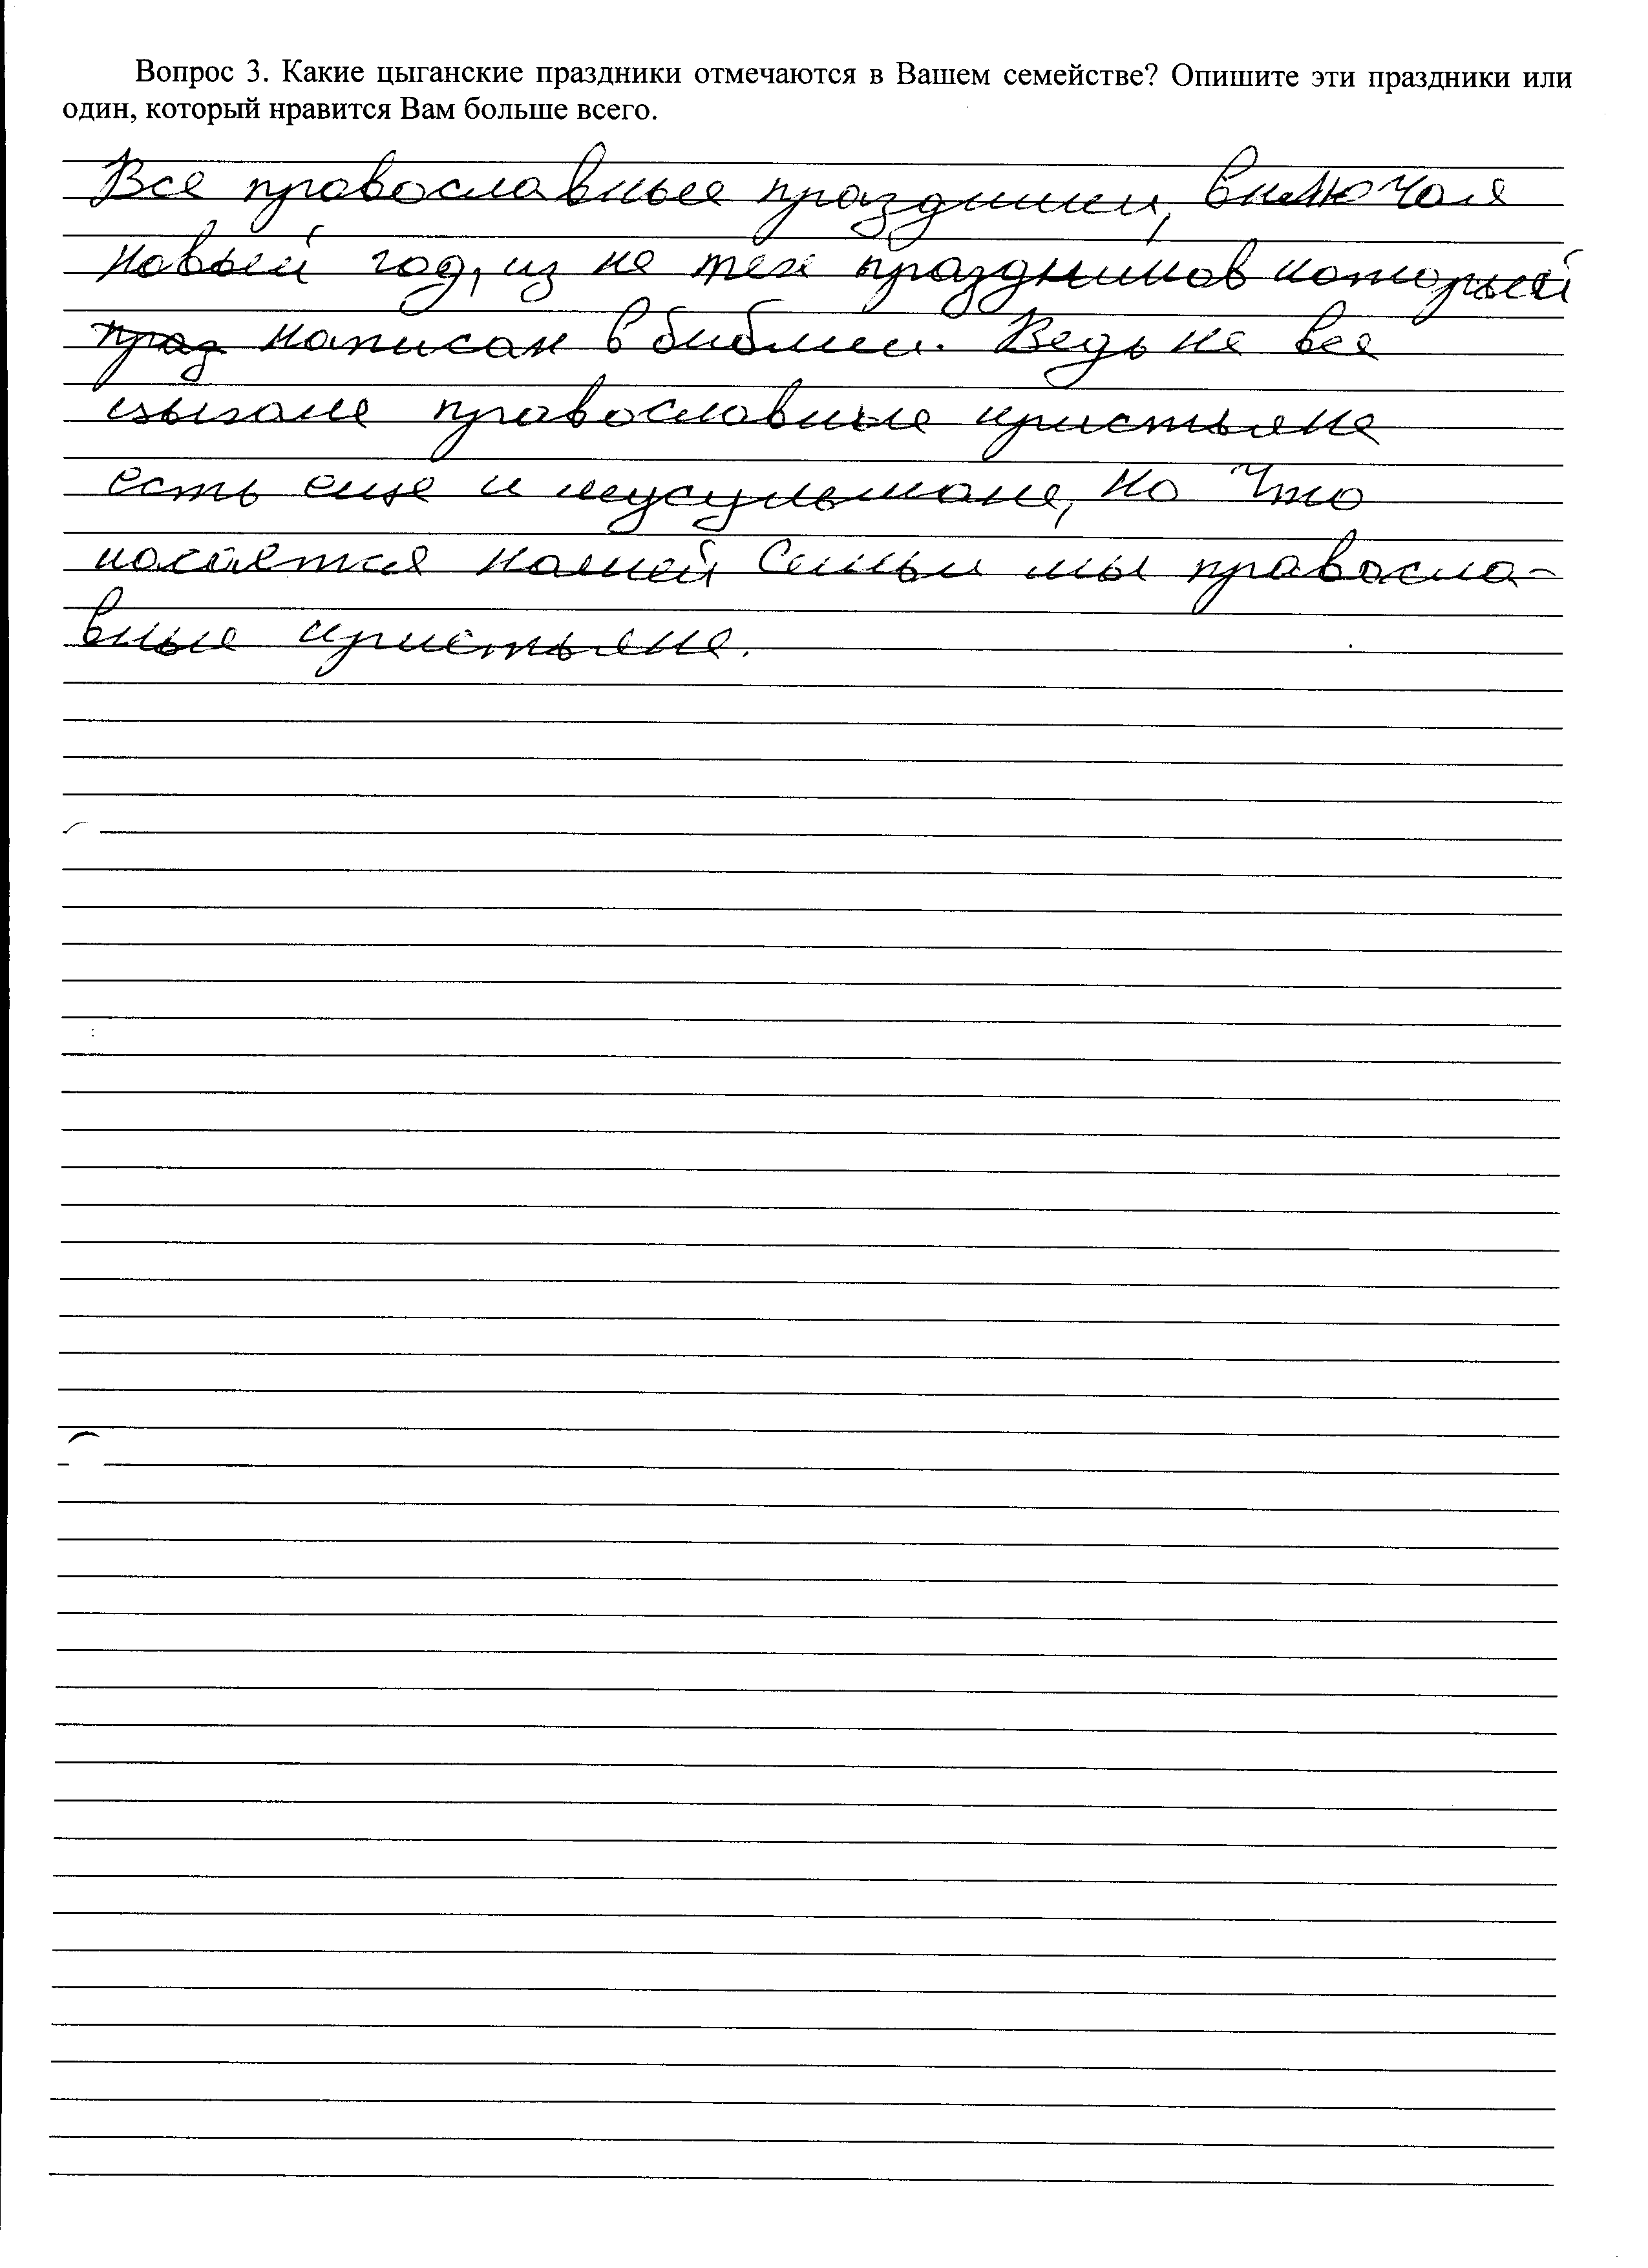 Вопрос 3. Какие цыганские праздники отмечаются в Вашем семействе? Опишите эти праздники или
один, который нравится Вам больше всего.
Все провославные праздники, включая
новый год, из не тех праздников который
праз написан в библии. Ведь не все
цыгане провославные христьяне
есть еще и мусульмане, но Что
касается нашей Семьи мы провосла-
вные христьяне.